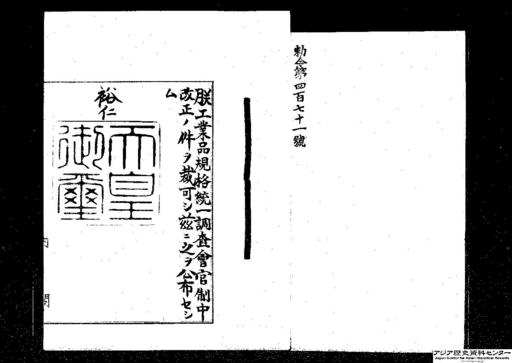 勅令第四百七十一號
朕工業品規格統一調査會官制中
改正ノ件ヲ裁可シ茲ニ之ヲ公布セシ
ム
裕仁
天皇
御璽
内閣
アジア歴史資料センター
Japan Center for Asian Historical Records